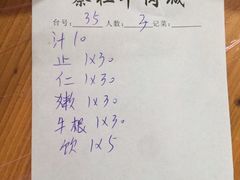 台号: 35 人数: 3 记菜:
汁10
止 1×30
仁 1×30
嫩 1×30
牛根 1×30
饮 1×5